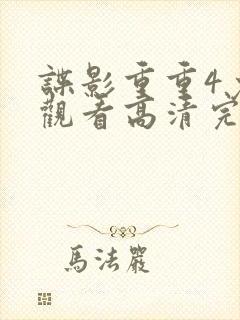 諜影重重4
觀看高清完
馬法嚴